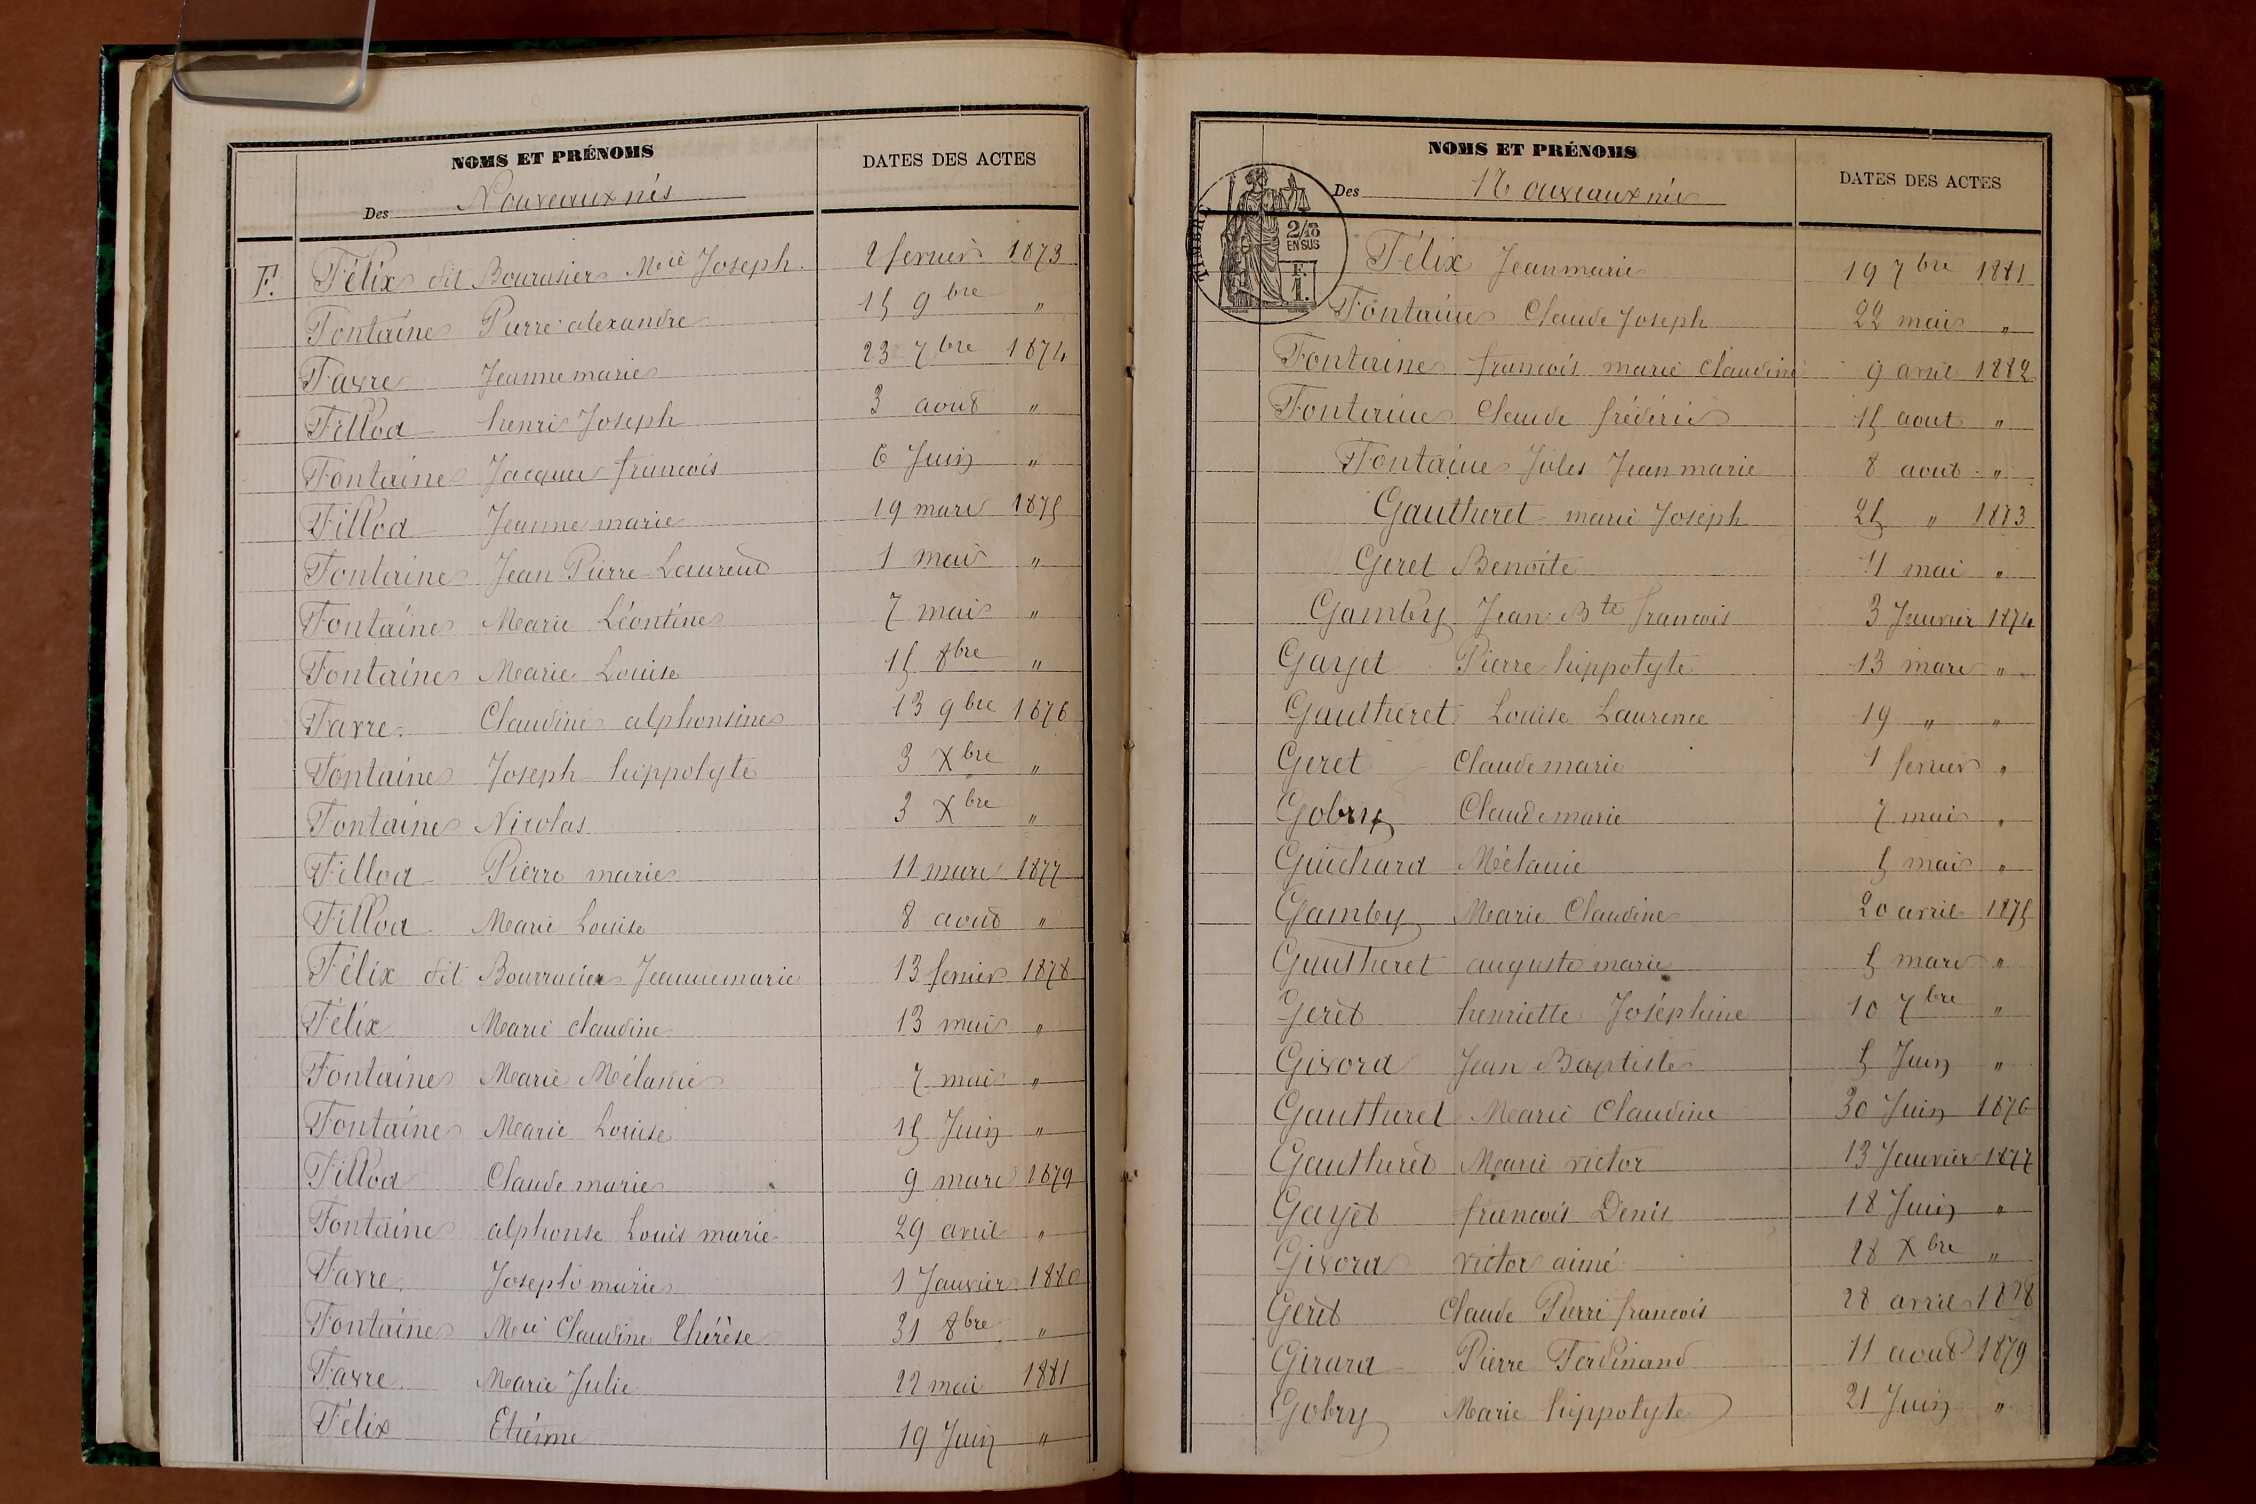 NOMS ET PRÉNOMS
DATES DES ACTES
Des Nouveaux nés
F. Félix dit Bourasier Mie Joseph 2 fevrier 1873
Fontaine Pierre alexandre 15 9bre "
Favre Jeanne marie 23 7bre 1874
Filloa henri Joseph 3 aout "
Fontaine Jacques francois 6 Juin "
Filloa Jeanne marie 19 mars 1875
Fontaine Jean Pierre Laurent 1 mai "
Fontaine Marie Léontine 7 mai "
Fontaine Marie Louise 15 8bre "
Favre Claudine alphonsine 13 9bre 1876
Fontaine Joseph hippolyte 3 Xbre "
Fontaine Nicolas 3 Xbre "
Filloa Pierre marie 11 mars 1877
Filloa Marie Louise 8 aout "
Félix dit Bourracier Jeanne marie 13 fevrier 1878
Félix Marie claudine 13 mai "
Fontaine Marie Mélanie 7 mai "
Fontaine Marie Louise 15 Juin "
Filloa Claude marie 9 mars 1879
Fontaine alphonse Louis marie 29 avril "
Favre Joseph marie 1 Janvier 1880
Fontaine Mie Claudine Thérèse 31 8bre "
Favre Marie Julie 22 mai 1881
Félix Etiénne 19 Juin "
NOMS ET PRÉNOMS
DATES DES ACTES
Des Nouveaux nés
2/10
EN SUS
F.
1.
Félix Jean marie 19 7bre 1881
Fontaine Claude Joseph 22 mai "
Fontaine francois marie claudine 9 avril 1882
Fontaine Claude frédéric 15 aout "
Fontaine Jules Jean marie 8 aout "
Gautheret marie Joseph 25 " 1873
Geret Benoite 11 mai "
Gamby Jean Bte francois 3 Janvier 1874
Gayet Pierre hippolyte 13 mars "
Gautheret Louise Laurence 19 " "
Geret Claude marie 1 fevrier "
Gobry Claude marie 7 mai "
Guichard Mélanie 5 mai "
Gamby Marie Claudine 20 avril 1875
Gautheret auguste marie 5 mars "
Geret henriette Joséphine 10 7bre "
Givord Jean Baptiste 5 Juin "
Gautheret Marie Claudine 30 Juin 1876
Gautheret Marie victor 13 Janvier 1877
Gayet francois Denis 18 Juin "
Givord victor aimé 28 Xbre "
Geret Claude Pierre francois 28 avril 1878
Girard Pierre Ferdinand 11 aout 1879
Gobry Marie hippolyte 21 Juin "